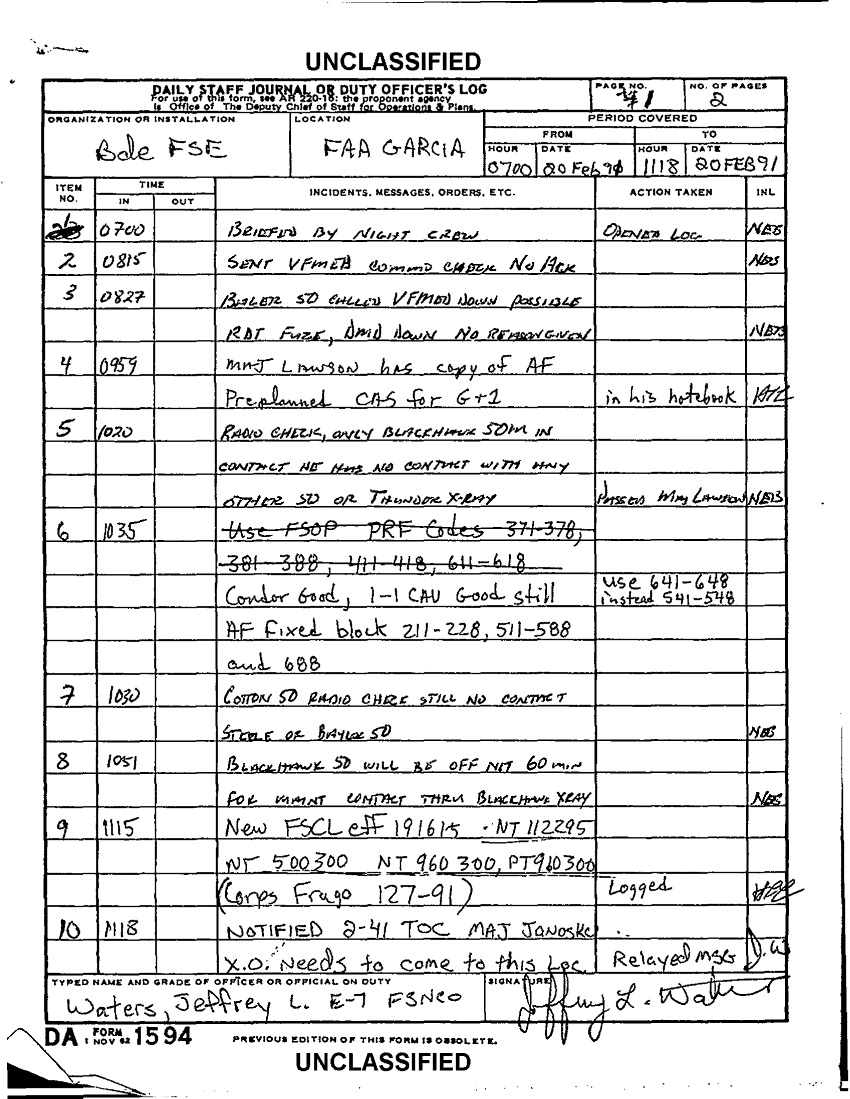 UNCLASSIFIED
DAILY STAFF JOURNAL OR DUTY OFFICER'S LOG
For use of this form, see AR 220-15; the proponent agency
is Office of The Deputy Chief of Staff for Operations & Plans.
PAGE NO. 1
NO. OF PAGES 2
ORGANIZATION OR INSTALLATION
Bde FSE
LOCATION
FAA GARCIA
PERIOD COVERED
FROM TO
HOUR DATE HOUR DATE
0700 20 Feb 91 1118 20FEB91
ITEM NO. TIME IN OUT INCIDENTS, MESSAGES, ORDERS, ETC. ACTION TAKEN INL
0700 BRIEFED BY NIGHT CREW OPENED LOG NEB
2 0815 SENT VFMED COMMO CHECK NO ACK NEB
3 0827 50 CALLED VFMED DOWN POSSIBLE
RDT FUZE, DMD DOWN NO REASON GIVEN NEB
4 0959 MAJ LAWSON has copy of AF
Preplanned CAS for G+1 in his notebook
5 1020 RADIO CHECK, ONLY BLACKHAWK 50M IN
CONTACT HE HAS NO CONTACT WITH ANY
OTHER 50 OR THUNDER X-RAY PASSED MAJ LAWSON NEB
6 1035 Use FSOP PRF Codes 371-378,
381-388, 411-418, 611-618
Condor Good, 1-1 CAV Good still use 641-648
instead 541-548
AF fixed block 211-228, 511-588
and 688
7 1030 COTTON 50 RADIO CHECK STILL NO CONTACT
STEELE OR 50 NEB
8 1051 BLACKHAWK 50 WILL BE OFF NET 60 min
FOR MAINT CONTACT THRU BLACKHAWK XRAY NEB
9 1115 New FSCL eff 191615 · NT 112295
NT 500300 NT 960 300, PT960300
(Corps Frago 127-91) Logged
10 1118 NOTIFIED 2-41 TOC MAJ JANOSKE
X.O. Needs to come to this Loc Relayed msg J.W
TYPED NAME AND GRADE OF OFFICER OR OFFICIAL ON DUTY
Waters, Jeffrey L. E-7 FSNCO
SIGNATURE
Jeffrey L. Waters
DA FORM 1 NOV 62 1594
PREVIOUS EDITION OF THIS FORM IS OBSOLETE.
UNCLASSIFIED